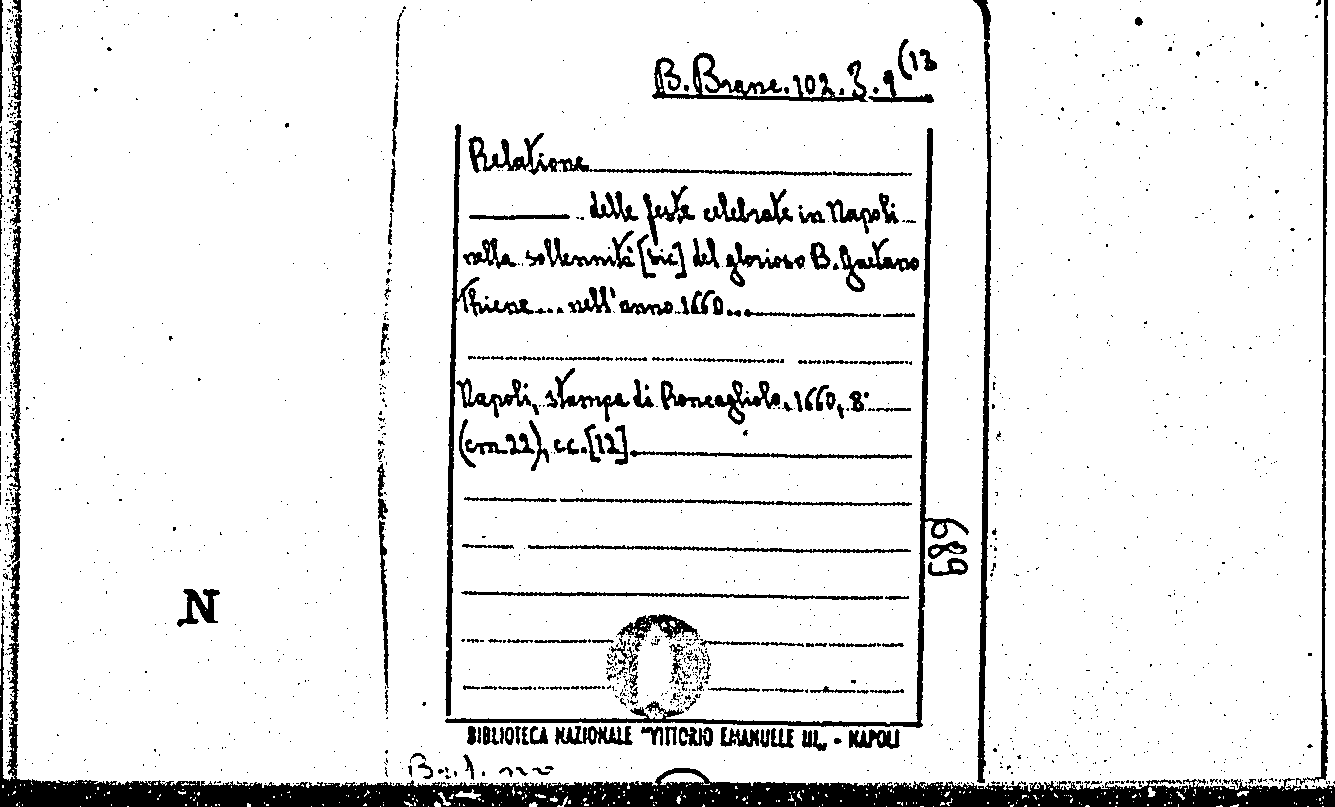 B. Branc. 102. 3. 9 (13
Relatione
delle feste celebrate in Napoli
nella sollennità [sic] del glorioso B. Gaetano
Thiene... nell'anno 1660...
Napoli, stampa di Roncagliolo, 1660, 8°
(cm 22), cc. [12].
689
N
BIBLIOTECA NAZIONALE "VITTORIO EMANUELE III„ - NAPOLI